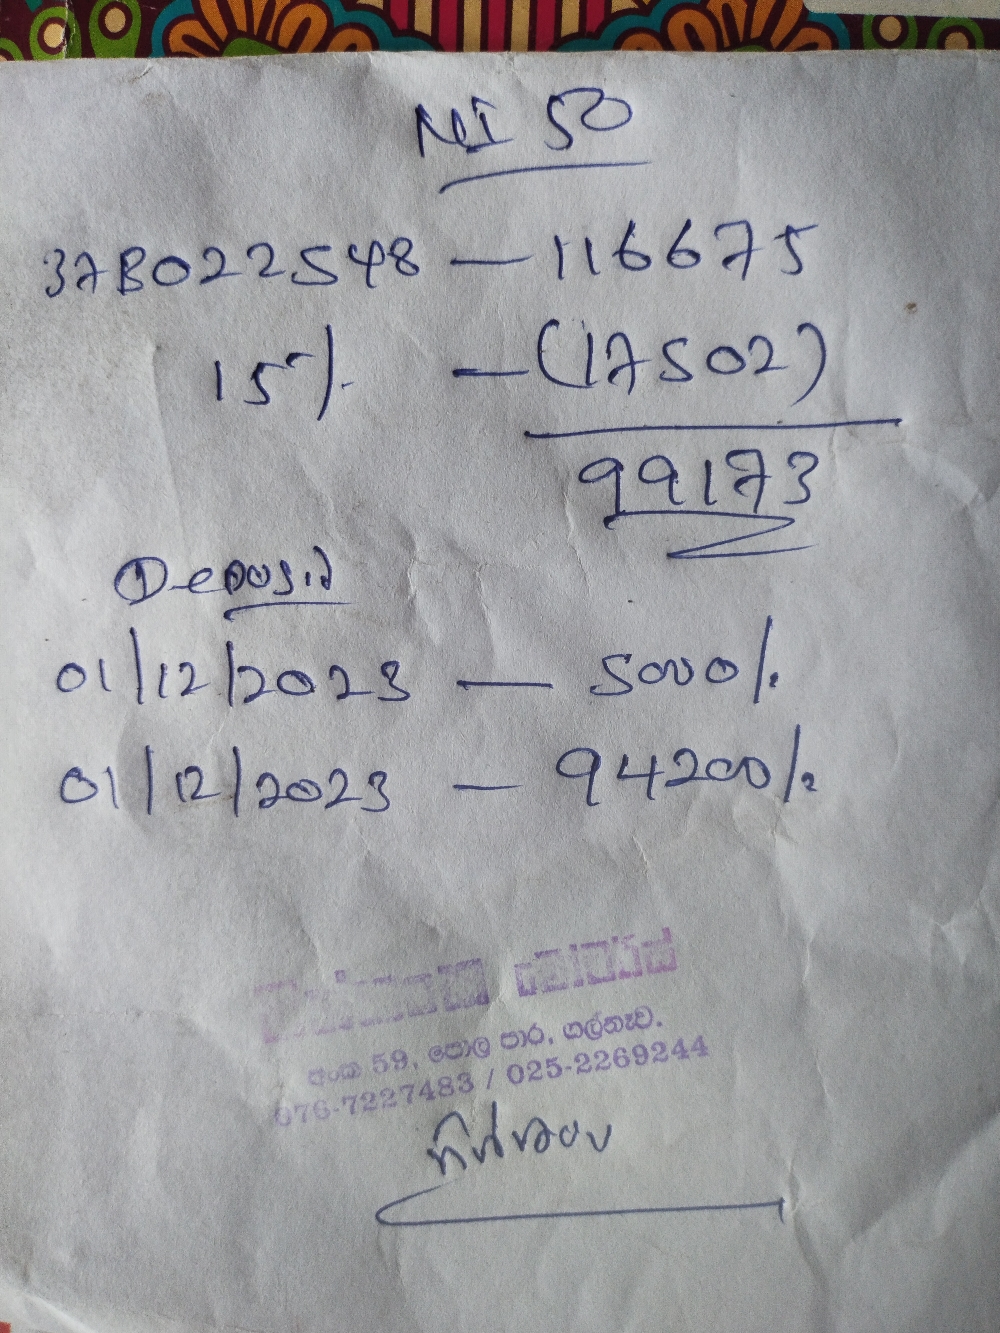 NI 50
37B022548 — 116675
15% — (17502)
99173
Deposit
01/12/2023 — 5000/.
01/12/2023 — 94200/.
අංක 59, පොල පාර, ගල්නෑව.
076-7227483 / 025-2269244